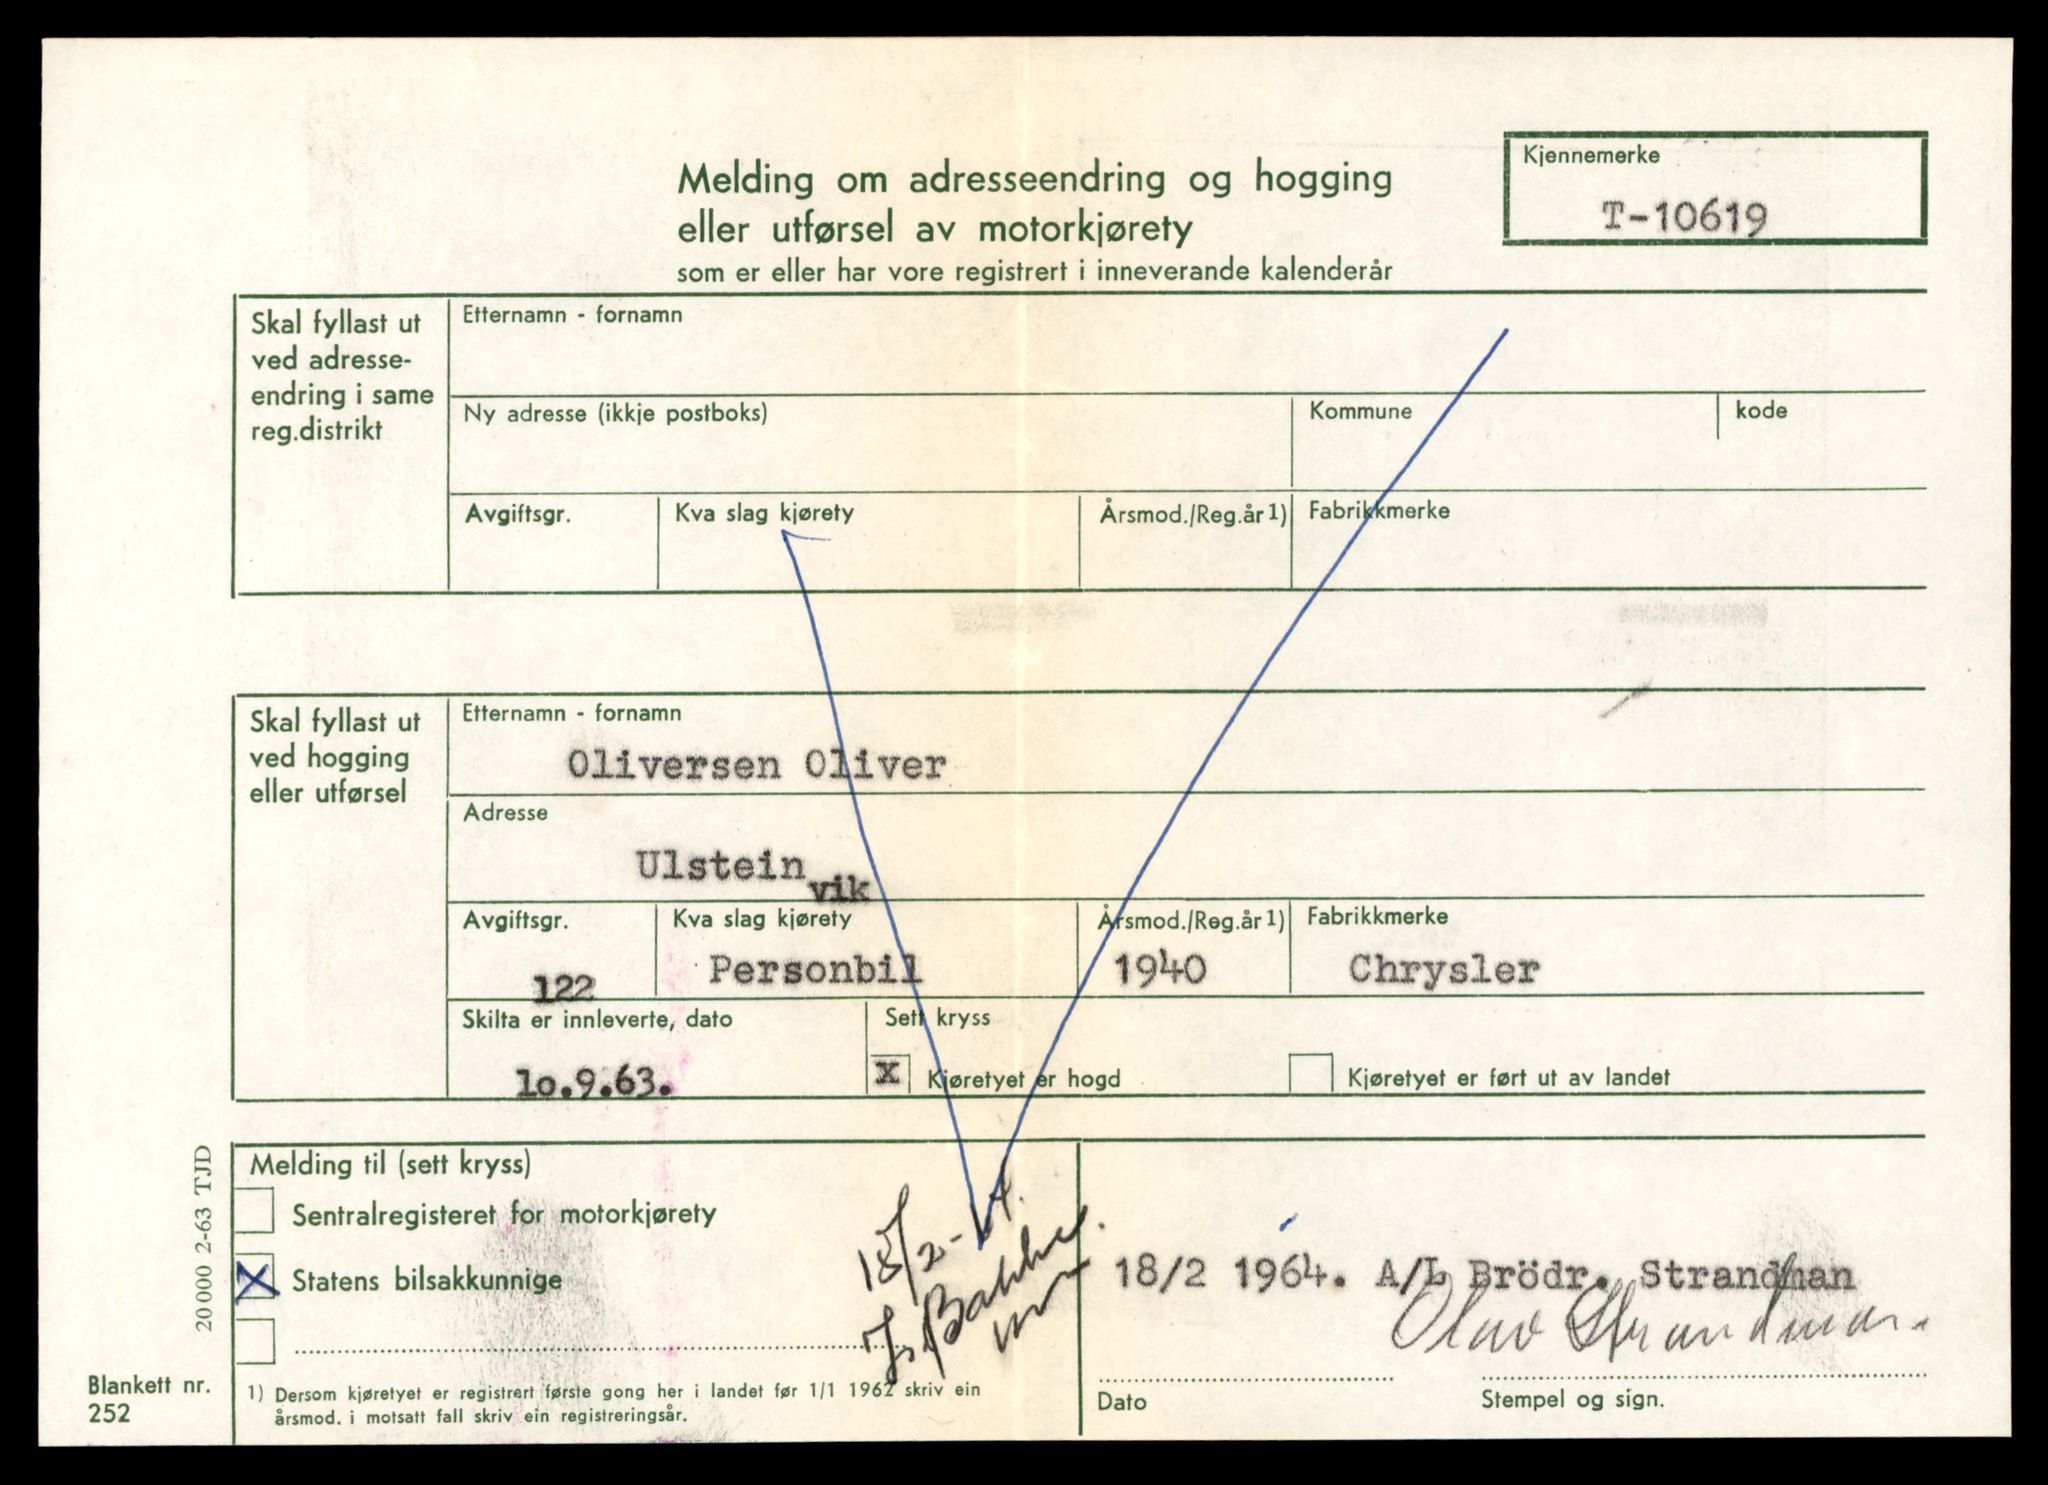 Kjennemerke
T-10619
Melding om adresseendring og hogging
eller utførsel av motorkjørety
som er eller har vore registrert i inneverande kalenderår
Skal fyllast ut
ved adresse-
endring i same
reg.distrikt
Etternamn - fornamn
Ny adresse (ikkje postboks)
Kommune
kode
Avgiftsgr.
Kva slag kjørety
Årsmod./Reg.år 1)
Fabrikkmerke
Skal fyllast ut
ved hogging
eller utførsel
Etternamn - fornamn
Oliversen Oliver
Adresse
Ulsteinvik
Avgiftsgr.
122
Kva slag kjørety
Personbil
Årsmod./Reg.år 1)
1940
Fabrikkmerke
Chrysler
Skilta er innleverte, dato
1o.9.63.
Sett kryss
x Kjøretyet er hogd
Kjøretyet er ført ut av landet
Melding til (sett kryss)
Sentralregisteret for motorkjørety
X Statens bilsakkunnige
18/2-64.
Bakke
18/2 1964. A/L Brödr. Strandman
Olav Strandman.
Dato
Stempel og sign.
1) Dersom kjøretyet er registrert første gong her i landet før 1/1 1962 skriv ein
årsmod. i motsatt fall skriv ein registreringsår.
20 000 2-63 TJD
Blankett nr.
252